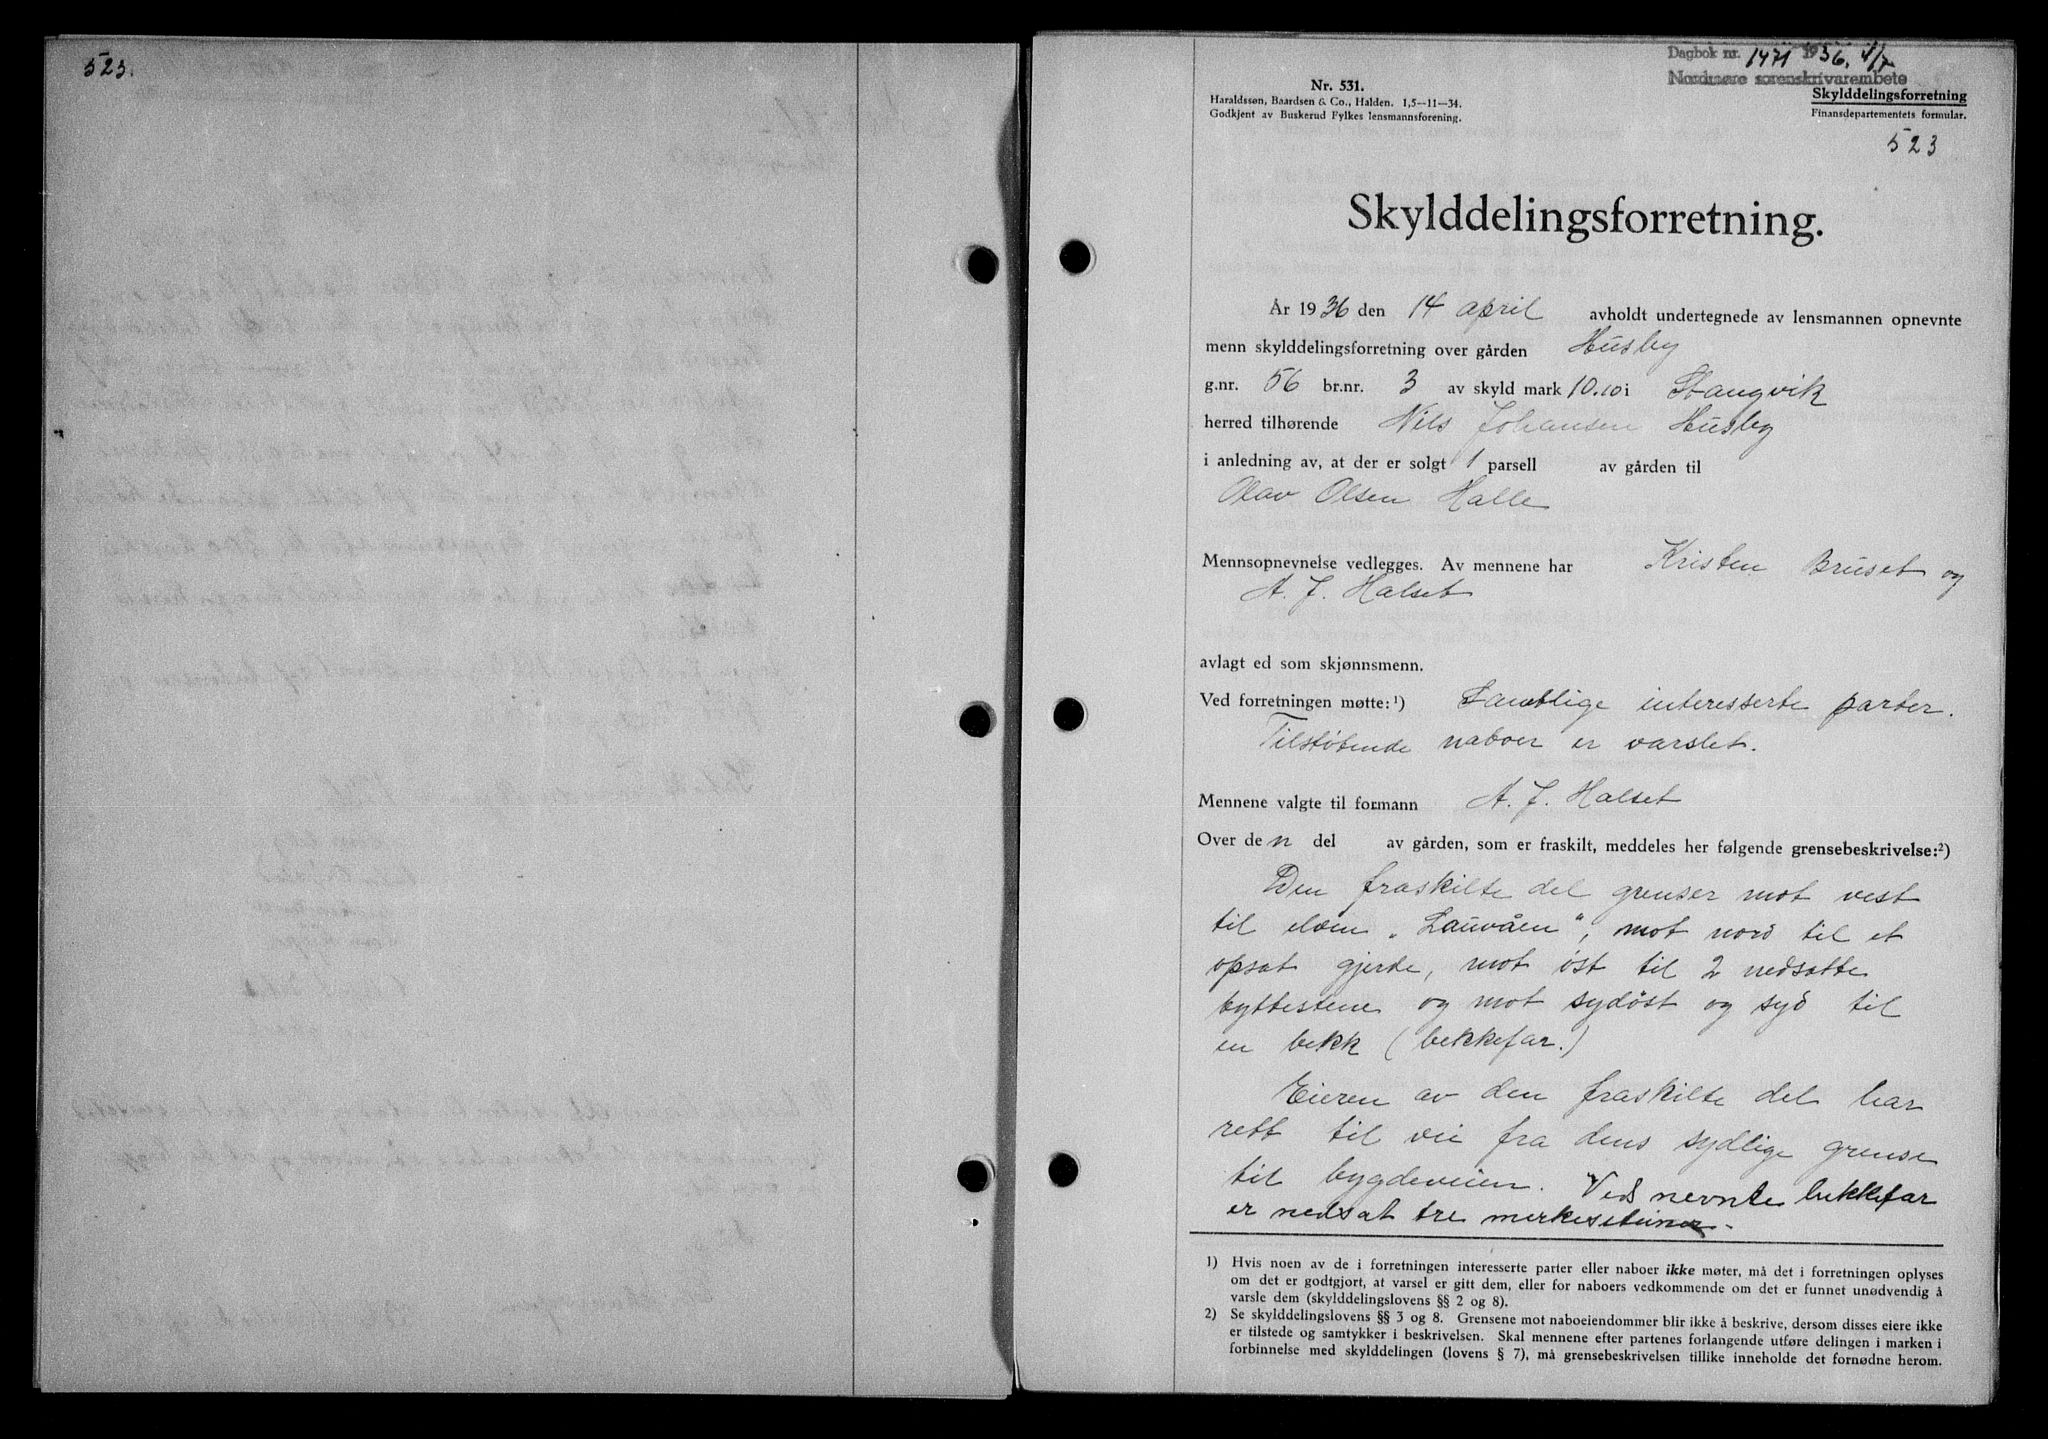 523.
Dagbok nr. 1471 1936, 4/7
Nordmøre sorenskrivarembete
Nr. 531.
Haraldssøn, Baardsen & Co., Halden. 1,5—11—34.
Godkjent av Buskerud Fylkes lensmannsforening.
Skylddelingsforretning
Finansdepartementets formular.
523
Skylddelingsforretning.
År 1936 den 14 april avholdt undertegnede av lensmannen opnevnte
menn skylddelingsforretning over gården Husby
g.nr. 56 br.nr. 3 av skyld mark 10.10 i Stangvik
herred tilhørende Nils Johansen Husby
i anledning av, at der er solgt 1 parsell av gården til
Olav Olsen Halle
Mennsopnevnelse vedlegges. Av mennene har Kristen Bruset og
A. J. Halset
avlagt ed som skjønnsmenn.
Ved forretningen møtte:¹) Samtlige interesserte parter.
Tilstøtende naboer er varslet.
Mennene valgte til formann A. J. Halset
Over den del av gården, som er fraskilt, meddeles her følgende grensebeskrivelse:²)
Den fraskilte del grenser mot vest
til elven „Lauvåen“, mot nord til et
opsat gjerde, mot øst til 2 nedsatte
byttestene og mot sydøst og syd til
en bekk (bekkefar.)
Eieren av den fraskilte del har
rett til vei fra dens sydlige grense
til bygdeveien. Ved nevnte bekkefar
er nedsat tre merkesteiner.
1) Hvis noen av de i forretningen interesserte parter eller naboer ikke møter, må det i forretningen oplyses
om det er godtgjort, at varsel er gitt dem, eller for naboers vedkommende om det er funnet unødvendig å
varsle dem (skylddelingslovens §§ 2 og 8).
2) Se skylddelingslovens §§ 3 og 8. Grensene mot naboeiendommer blir ikke å beskrive, dersom disses eiere ikke
er tilstede og samtykker i beskrivelsen. Skal mennene efter partenes forlangende utføre delingen i marken i
forbinnelse med skylddelingen (lovens § 7), må grensebeskrivelsen tillike inneholde det fornødne herom.